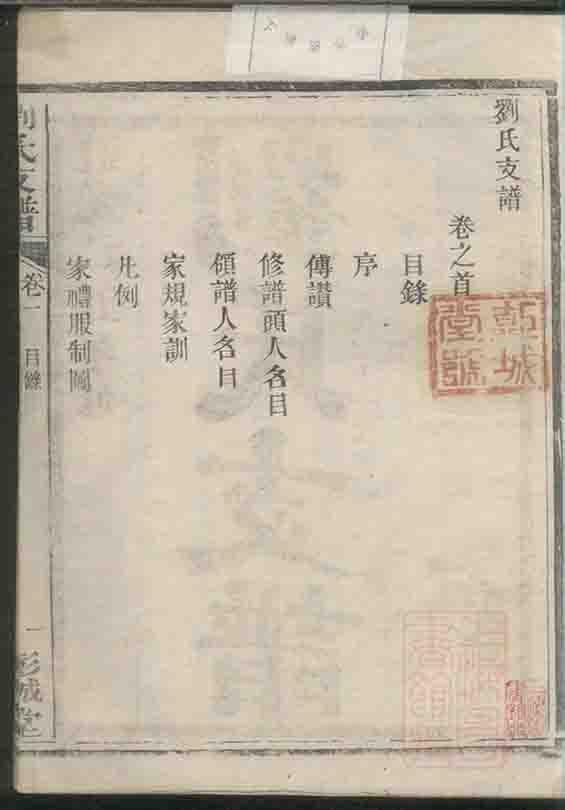 劉氏支譜
卷之首
目錄
序
傳讃
修譜頭人名目
領譜人名目
家規家訓
凡例
家禮服制圖
劉氏支譜
卷一
目錄
一
彭城堂
彭城
堂記